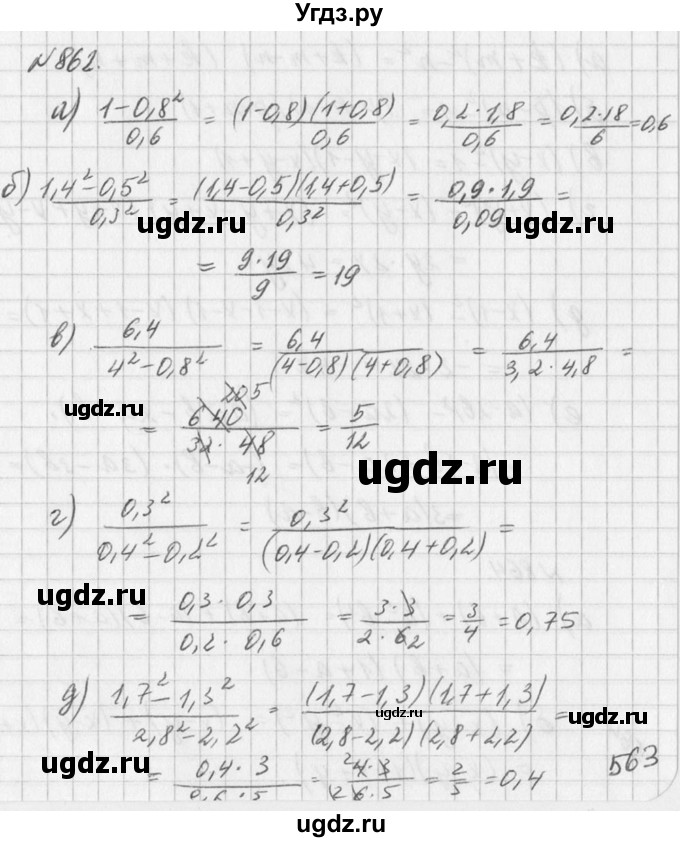 Угдз.ру
№862.
а) (1-0,8²)/0,6 = (1-0,8)(1+0,8)/0,6 = 0,2·1,8/0,6 = 0,2·18/6 = 0,6
б) (1,4²-0,5²)/0,3² = (1,4-0,5)(1,4+0,5)/0,3² = 0,9·1,9/0,09 =
ugdz.ru ugdz.ru
= 9·19/9 = 19
в) 6,4/(4²-0,8²) = 6,4/((4-0,8)(4+0,8)) = 6,4/(3,2·4,8) =
20 5
= 640/(32·48) = 5/12
12
ugdz.ru
г) 0,3²/(0,4²-0,2²) = 0,3²/((0,4-0,2)(0,4+0,2)) =
ugdz.ru
= 0,3·0,3/(0,2·0,6) = 3·3/(2·6 2) = 3/4 = 0,75
д) (1,7²-1,3²)/(2,8²-2,2²) = (1,7-1,3)(1,7+1,3)/((2,8-2,2)(2,8+2,2)) =
ugdz.ru
ugdz.ru
= 0,4·3/(0,6·5) = 2 4·3/(2 6·5) = 2/5 = 0,4
563
ugdz.ru
ugdz.ru